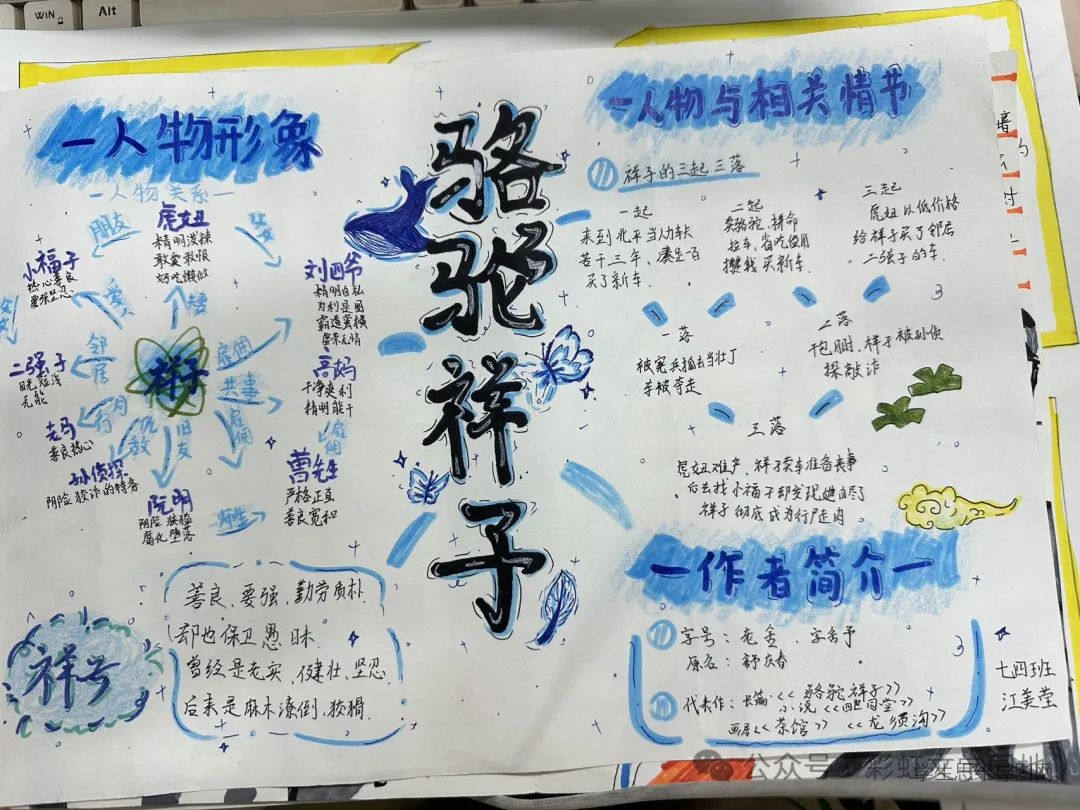 WIN
Alt
一人物形象
一人物关系一
朋友
虎妞
精明泼辣
敢爱敢恨
好吃懒做
小福子
热心善良
要强坚忍
爱
妻
刘四爷
精明自私
为利是图
霸道蛮横
雇佣
祥子
邻居
二强子
无能
共事
高妈
干净爽利
精明能干
雇佣
雇佣
老马
善良热心
仇敌
旧友
孙侦探
阴险狡诈的特务
阮明
腐化堕落
师生
曹先生
严格正直
善良宽和
善良、要强、勤劳质朴
却也保卫愚日木
曾经是老实、健壮、坚忍
后来是麻木潦倒、狡猾
骆驼祥子
一人物与相关情节
(1) 祥子的三起三落
一起
来到北平当人力车夫
苦干三年，凑足一百
买了新车
二起
卖骆驼，拼命
拉车，省吃俭用
攒钱买新车
三起
虎妞以低价格
给祥子买了邻居
二强子的车
一落
被宪兵抓去当壮丁
车被夺走
二落
干包
祥子被孙侦
探敲诈
三落
虎妞难产，祥子卖车准备丧事
后去找小福子却发现她自尽了
祥子彻底成为行尸走肉
一作者简介一
字号：老舍、字舍予
原名：舒庆春
代表作：长篇小说《骆驼祥子》《四世同堂》
画居《茶馆》《龙须沟》
七四班
江美莹
公众号